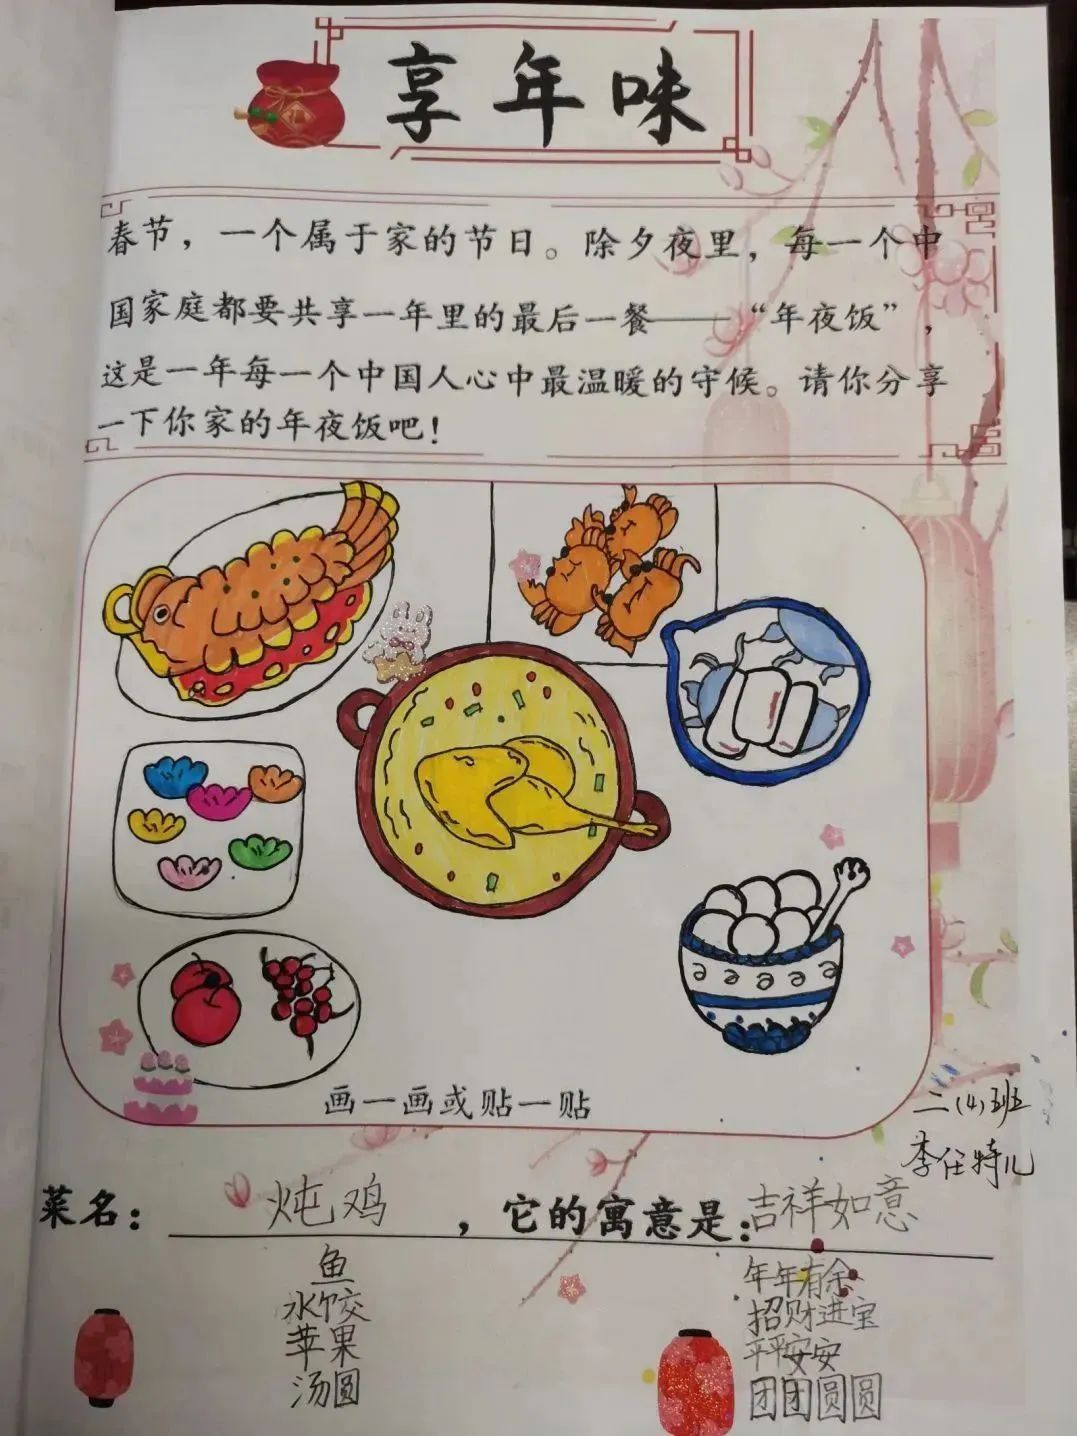 享年味
春节，一个属于家的节日。除夕夜里，每一个中
国家庭都要共享一年里的最后一餐——“年夜饭”，
这是一年每一个中国人心中最温暖的守候。请你分享
一下你家的年夜饭吧！
画一画或贴一贴
二(4)班
李任特儿
菜名：炖鸡，它的寓意是：吉祥如意
鱼 年年有余
水饺 招财进宝
苹果 平平安安
汤圆 团团圆圆